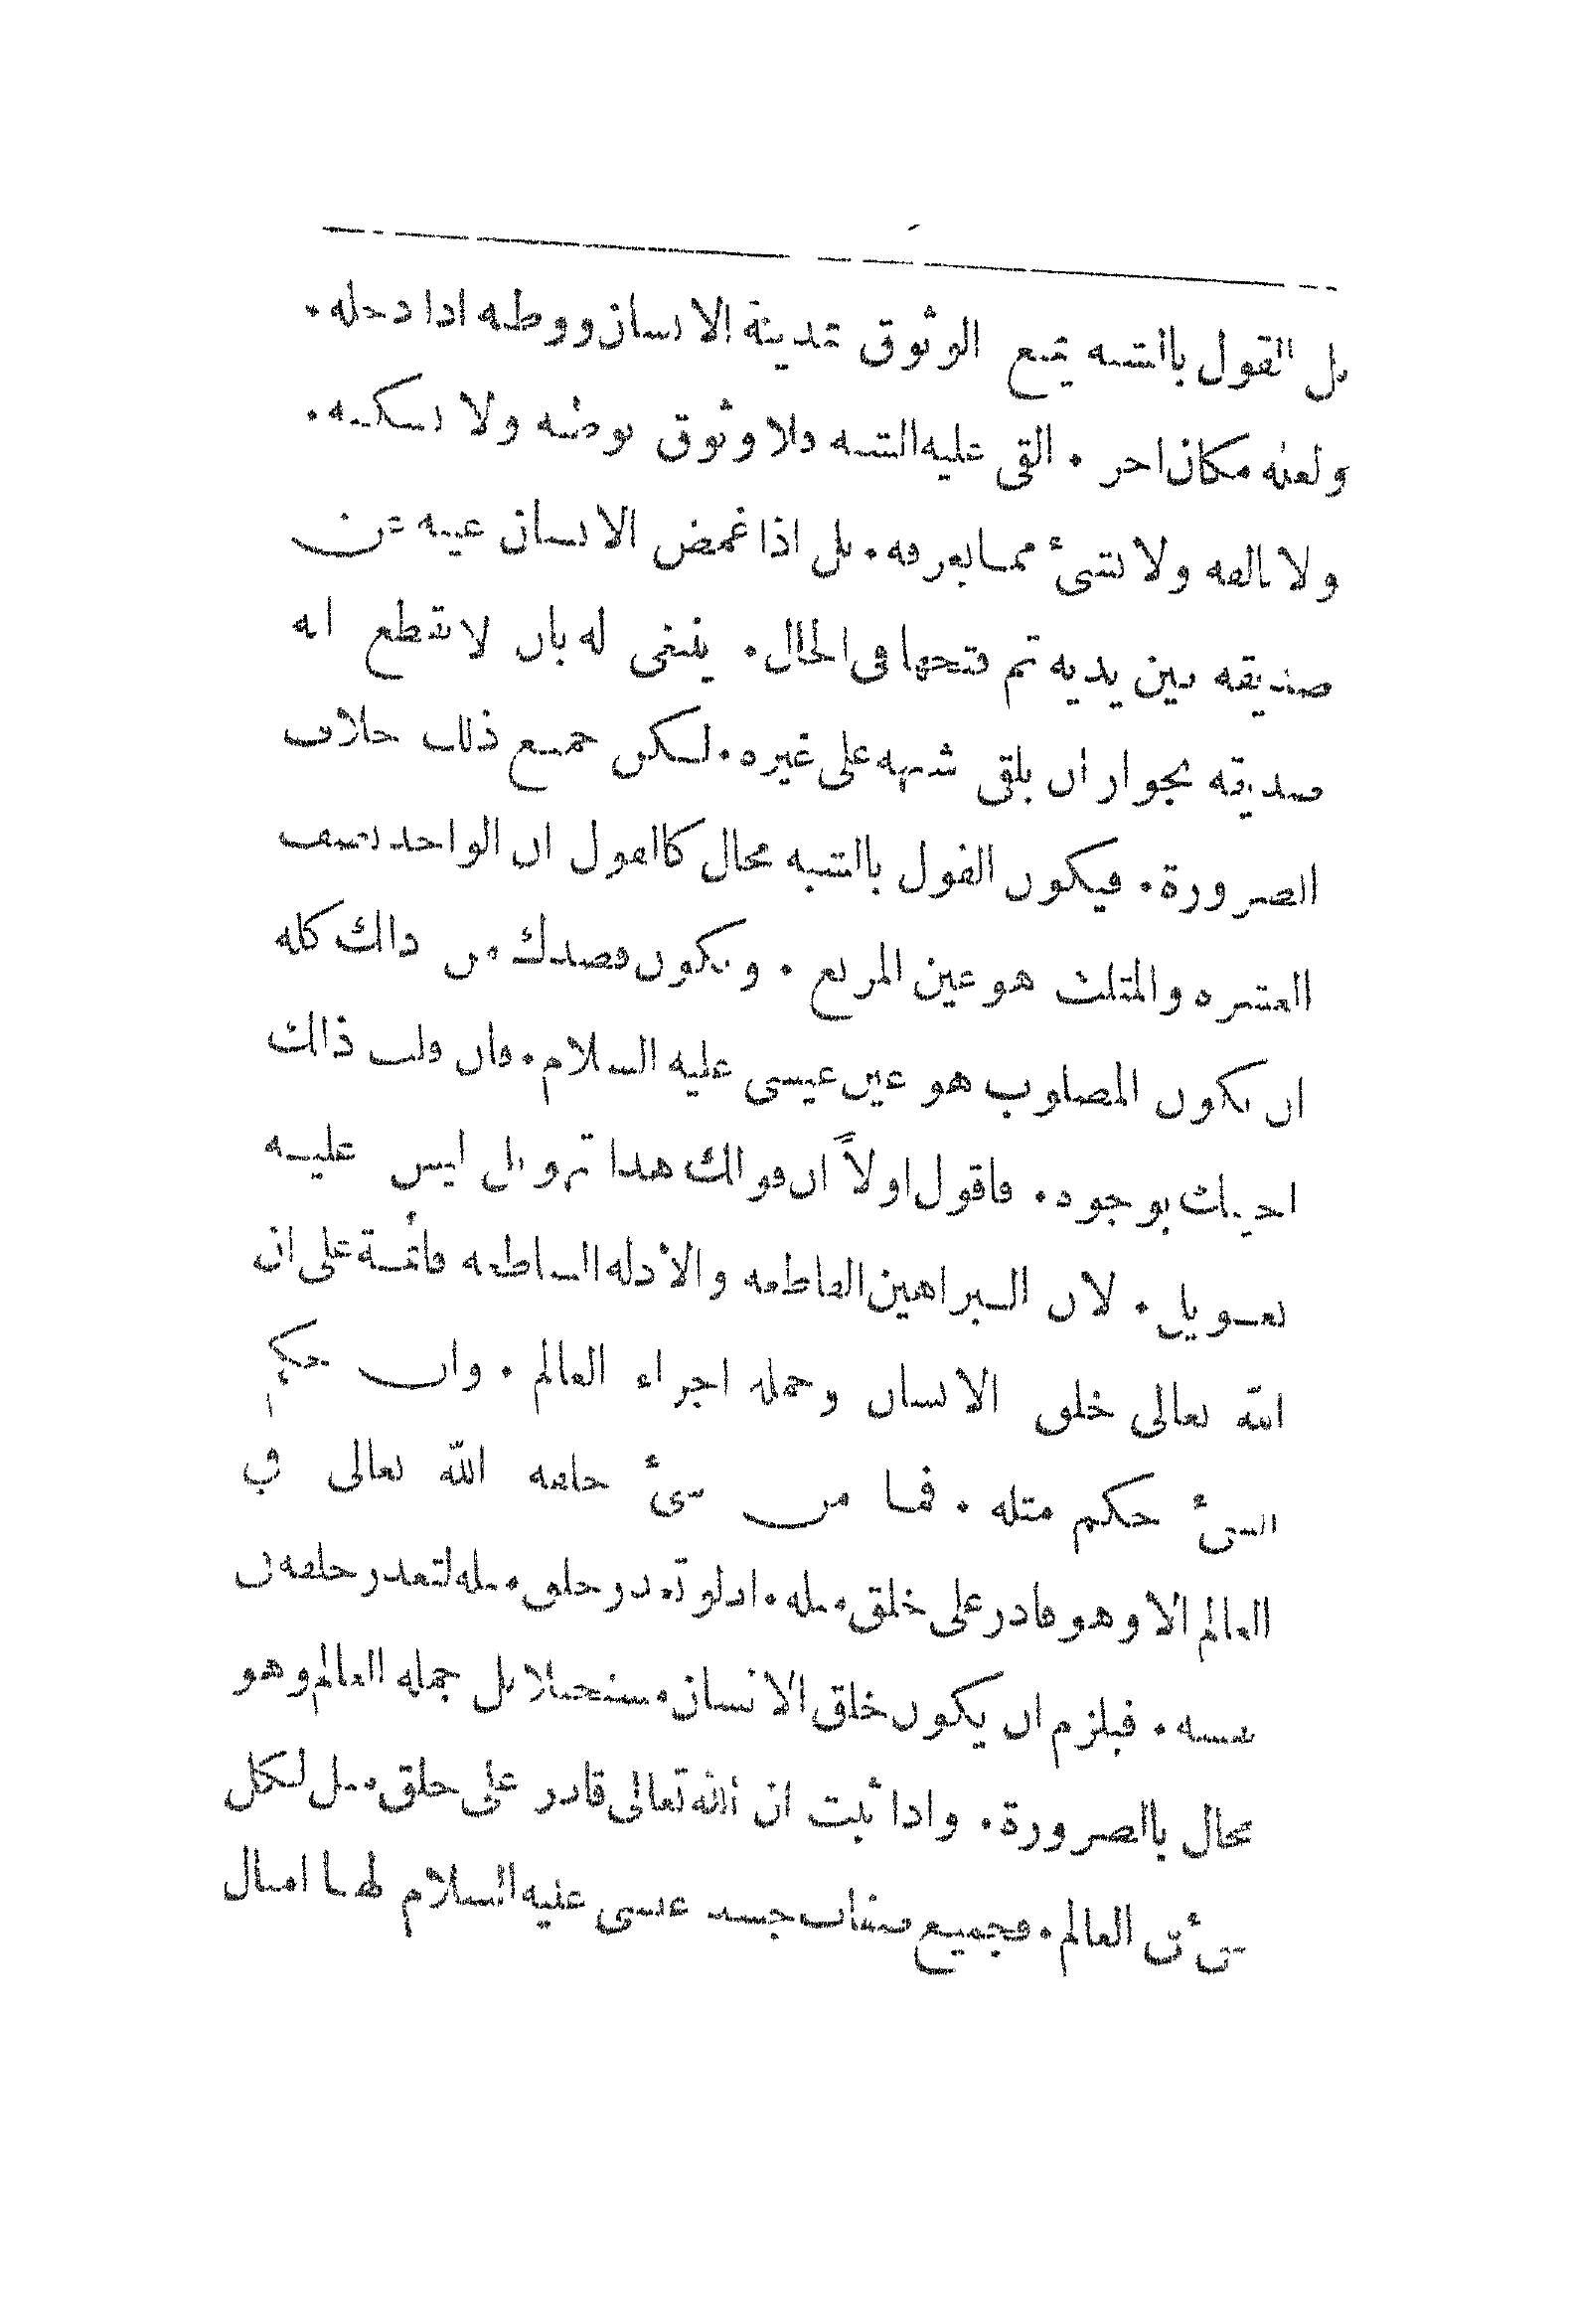 بل القول باالشبه يمنع الوثوق بمدينة الانسان ووطنه اذا دخله .
ولعله مكان اخر . القى عليه الشبه فلا وثوق بوطنه ولا بسكنه .
ولا بالفه ولا بشئ مما يعرفه . بل اذا غمض الانسان عينيه عن
صديقه بين يديه ثم فتحها فى الحال . ينبغى له بان لا يقطع انه
صديقه بجواز ان يلقى شبهه على غيره . لكن جميع ذلك خلاف
الضرورة . فيكون القول باالشبه محال كاالقول ان الواحد نصف
العشره والمثلث هو عين المربع . ويكون قصدك من ذالك كله
ان يكون المصلوب هو عين عيسى عليه السلام . فان قلت ذالك
اجيبك بوجوه . فاقول اولاً ان قولك هذا تهويل ليس عليه
تعويل . لان البراهين القاطعه والادله الساطعه قائمة على ان
الله تعالى خلق الانسان وجمله اجزاء العالم . وان حكم
الشئ حكم مثله . فما من شئ خلقه الله تعالى فى
العالم الا وهو قادر على خلق مثله . اذ لو تعذر خلق مثله لتعذر خلقه فى
نفسه . فيلزم ان يكون خلق الانسان مستحيلا بل جمله العالم وهو
محال باالضرورة . واذا ثبت ان الله تعالى قادر على خلق مثل لكل
شئ فى العالم . فجميع صفات جسد عيسى عليه السلام لها امثال